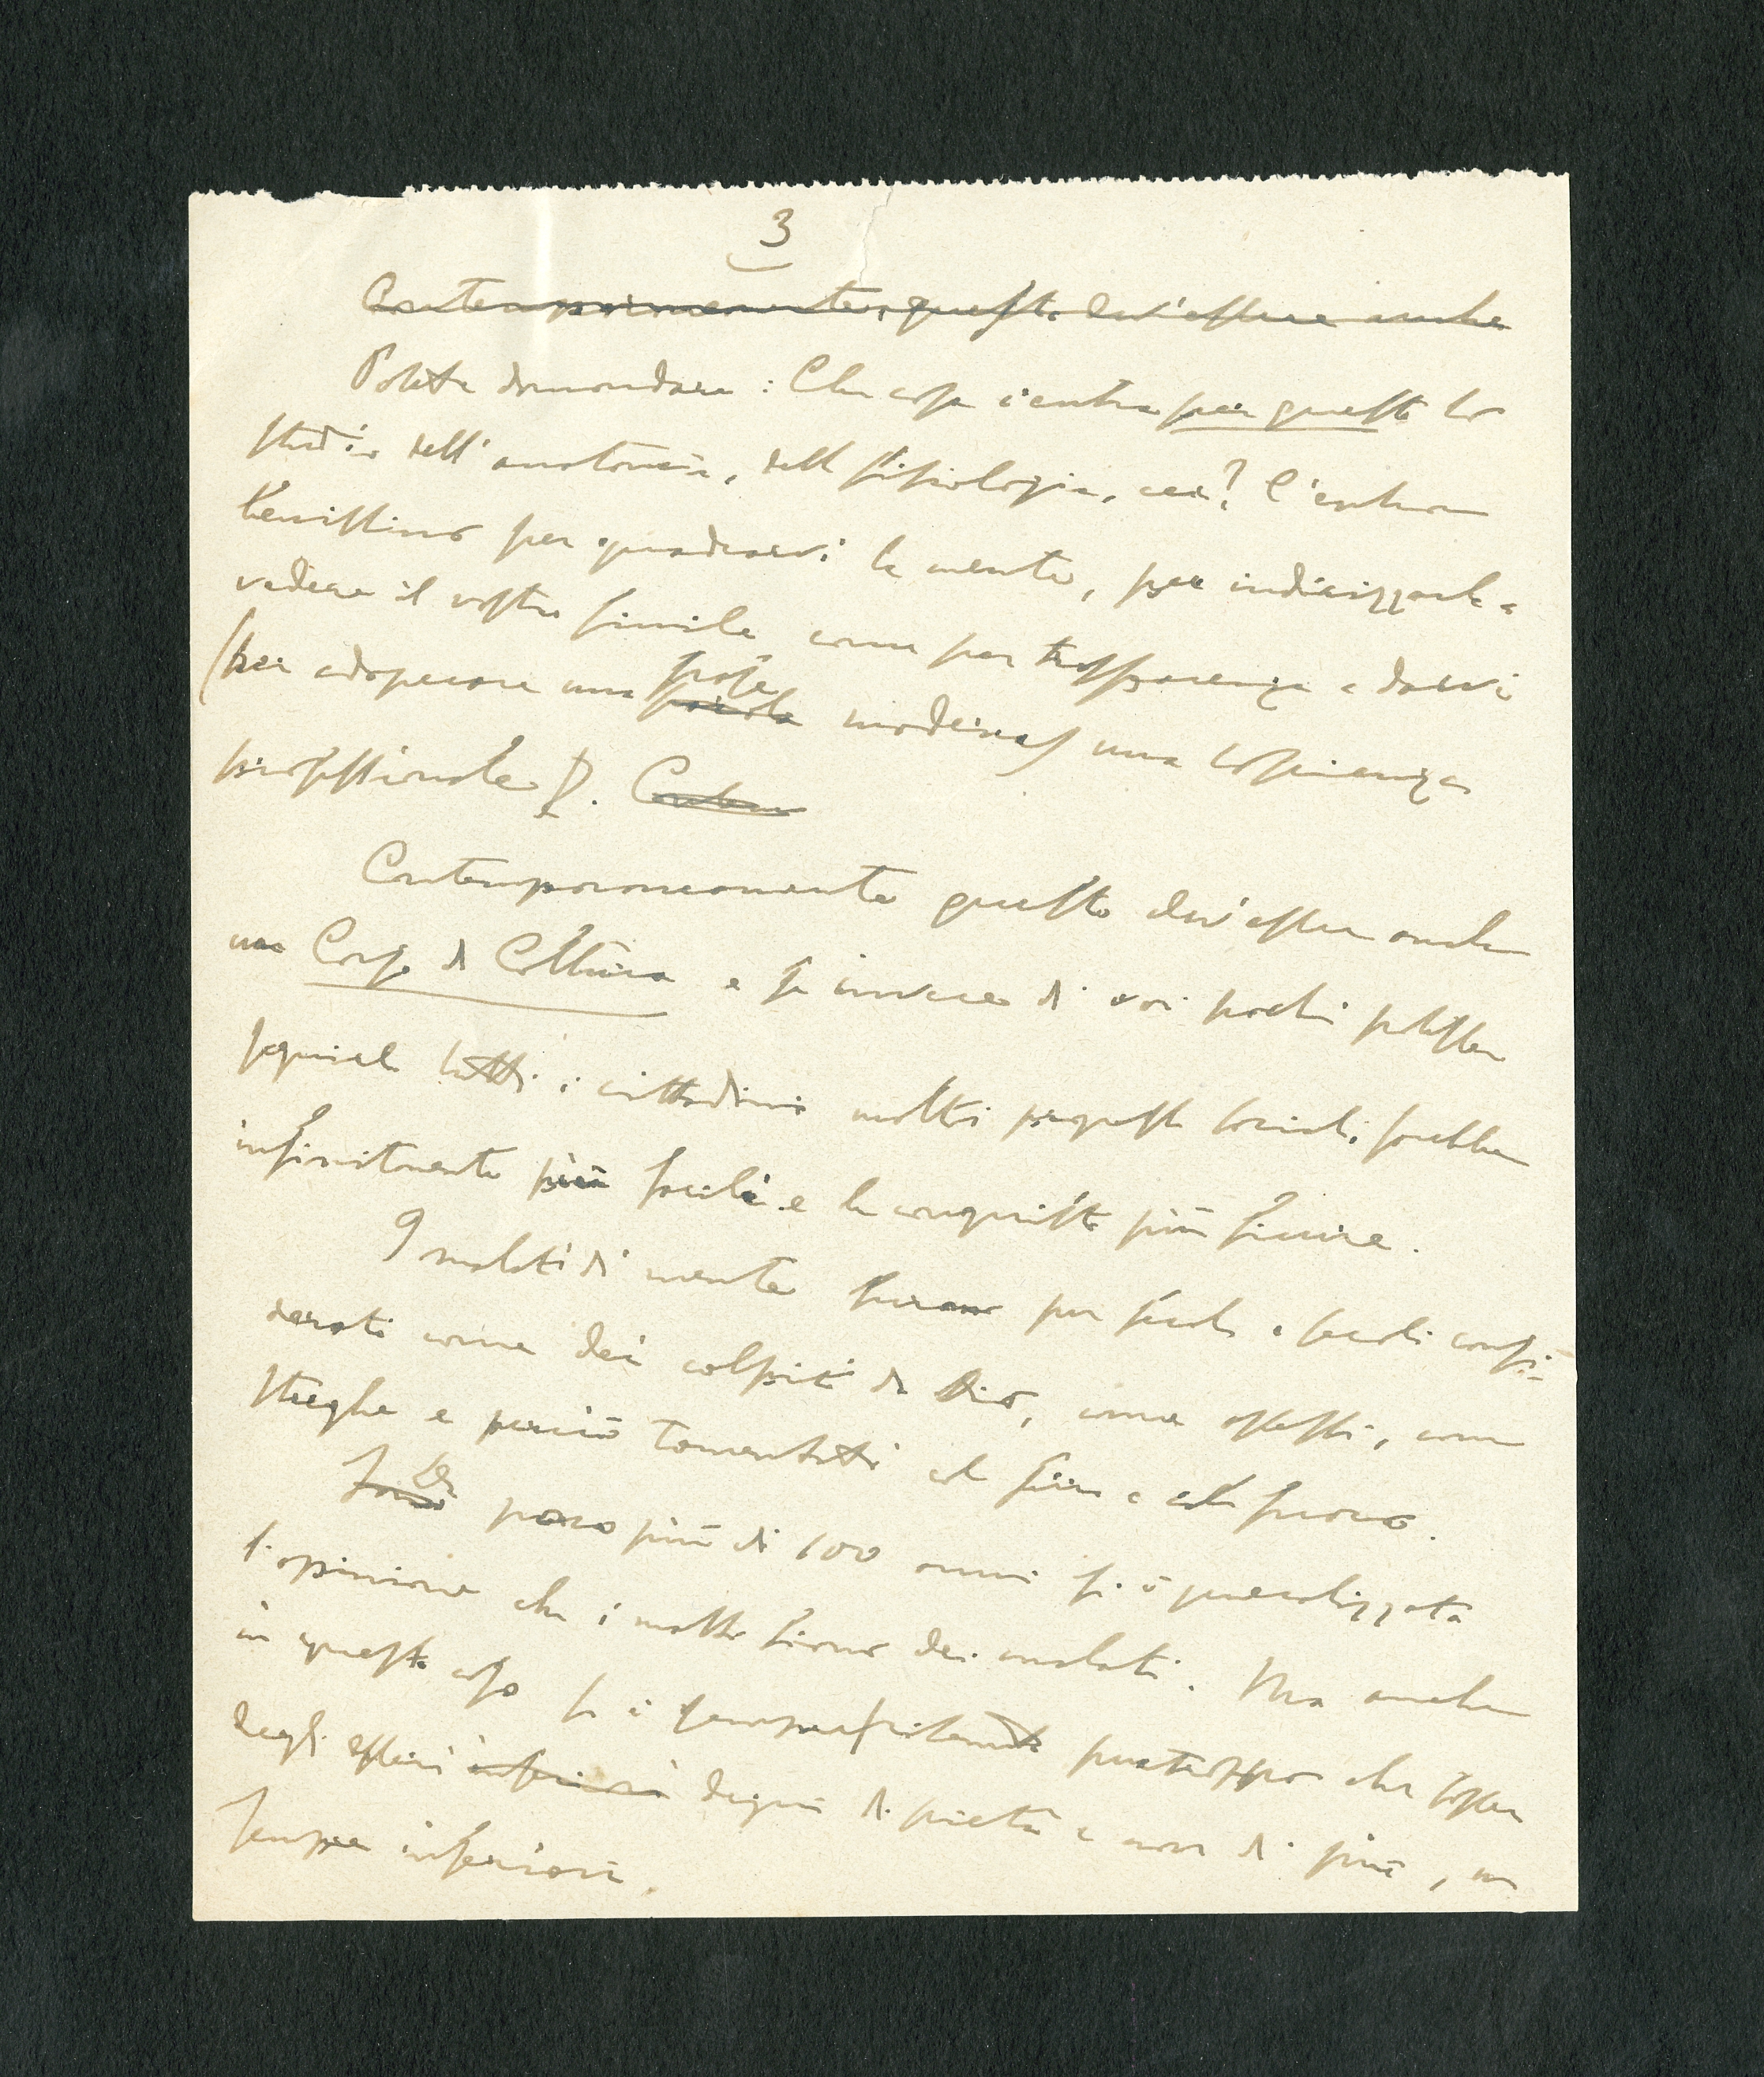 3
Contemporaneamente, questo dev'essere anche
Potete domandare: Che cosa c'entra per questo lo
studio dell'anatomia, della fisiologia, ecc? C'entra
benissimo per quadrarvi la mente, per indirizzarla a
vedere il vostro simile come per trasparenza e darvi
(per adoperare una parola frase moderna) una coscienza
professionale.
Contemporaneamente questo dev'essere anche
un Corso di Coltura e se invece di voi pochi potesser
seguirlo tutti i cittadini molti progressi sociali sarebber
infinitamente più facili e le conquiste più sicure.
I malati di mente furono per secoli e secoli consi-
derati come dei colpiti da Dio, come ossessi, come
streghe e perciò tormentati col ferro e col fuoco.
Da poco più di 100 anni si è generalizzata
l'opinione che i matti siano dei malati. Ma anche
in questo caso si è purtroppo che fosser
degli esseri inferiori degni di pietà e non di più, ma
sempre inferiori.